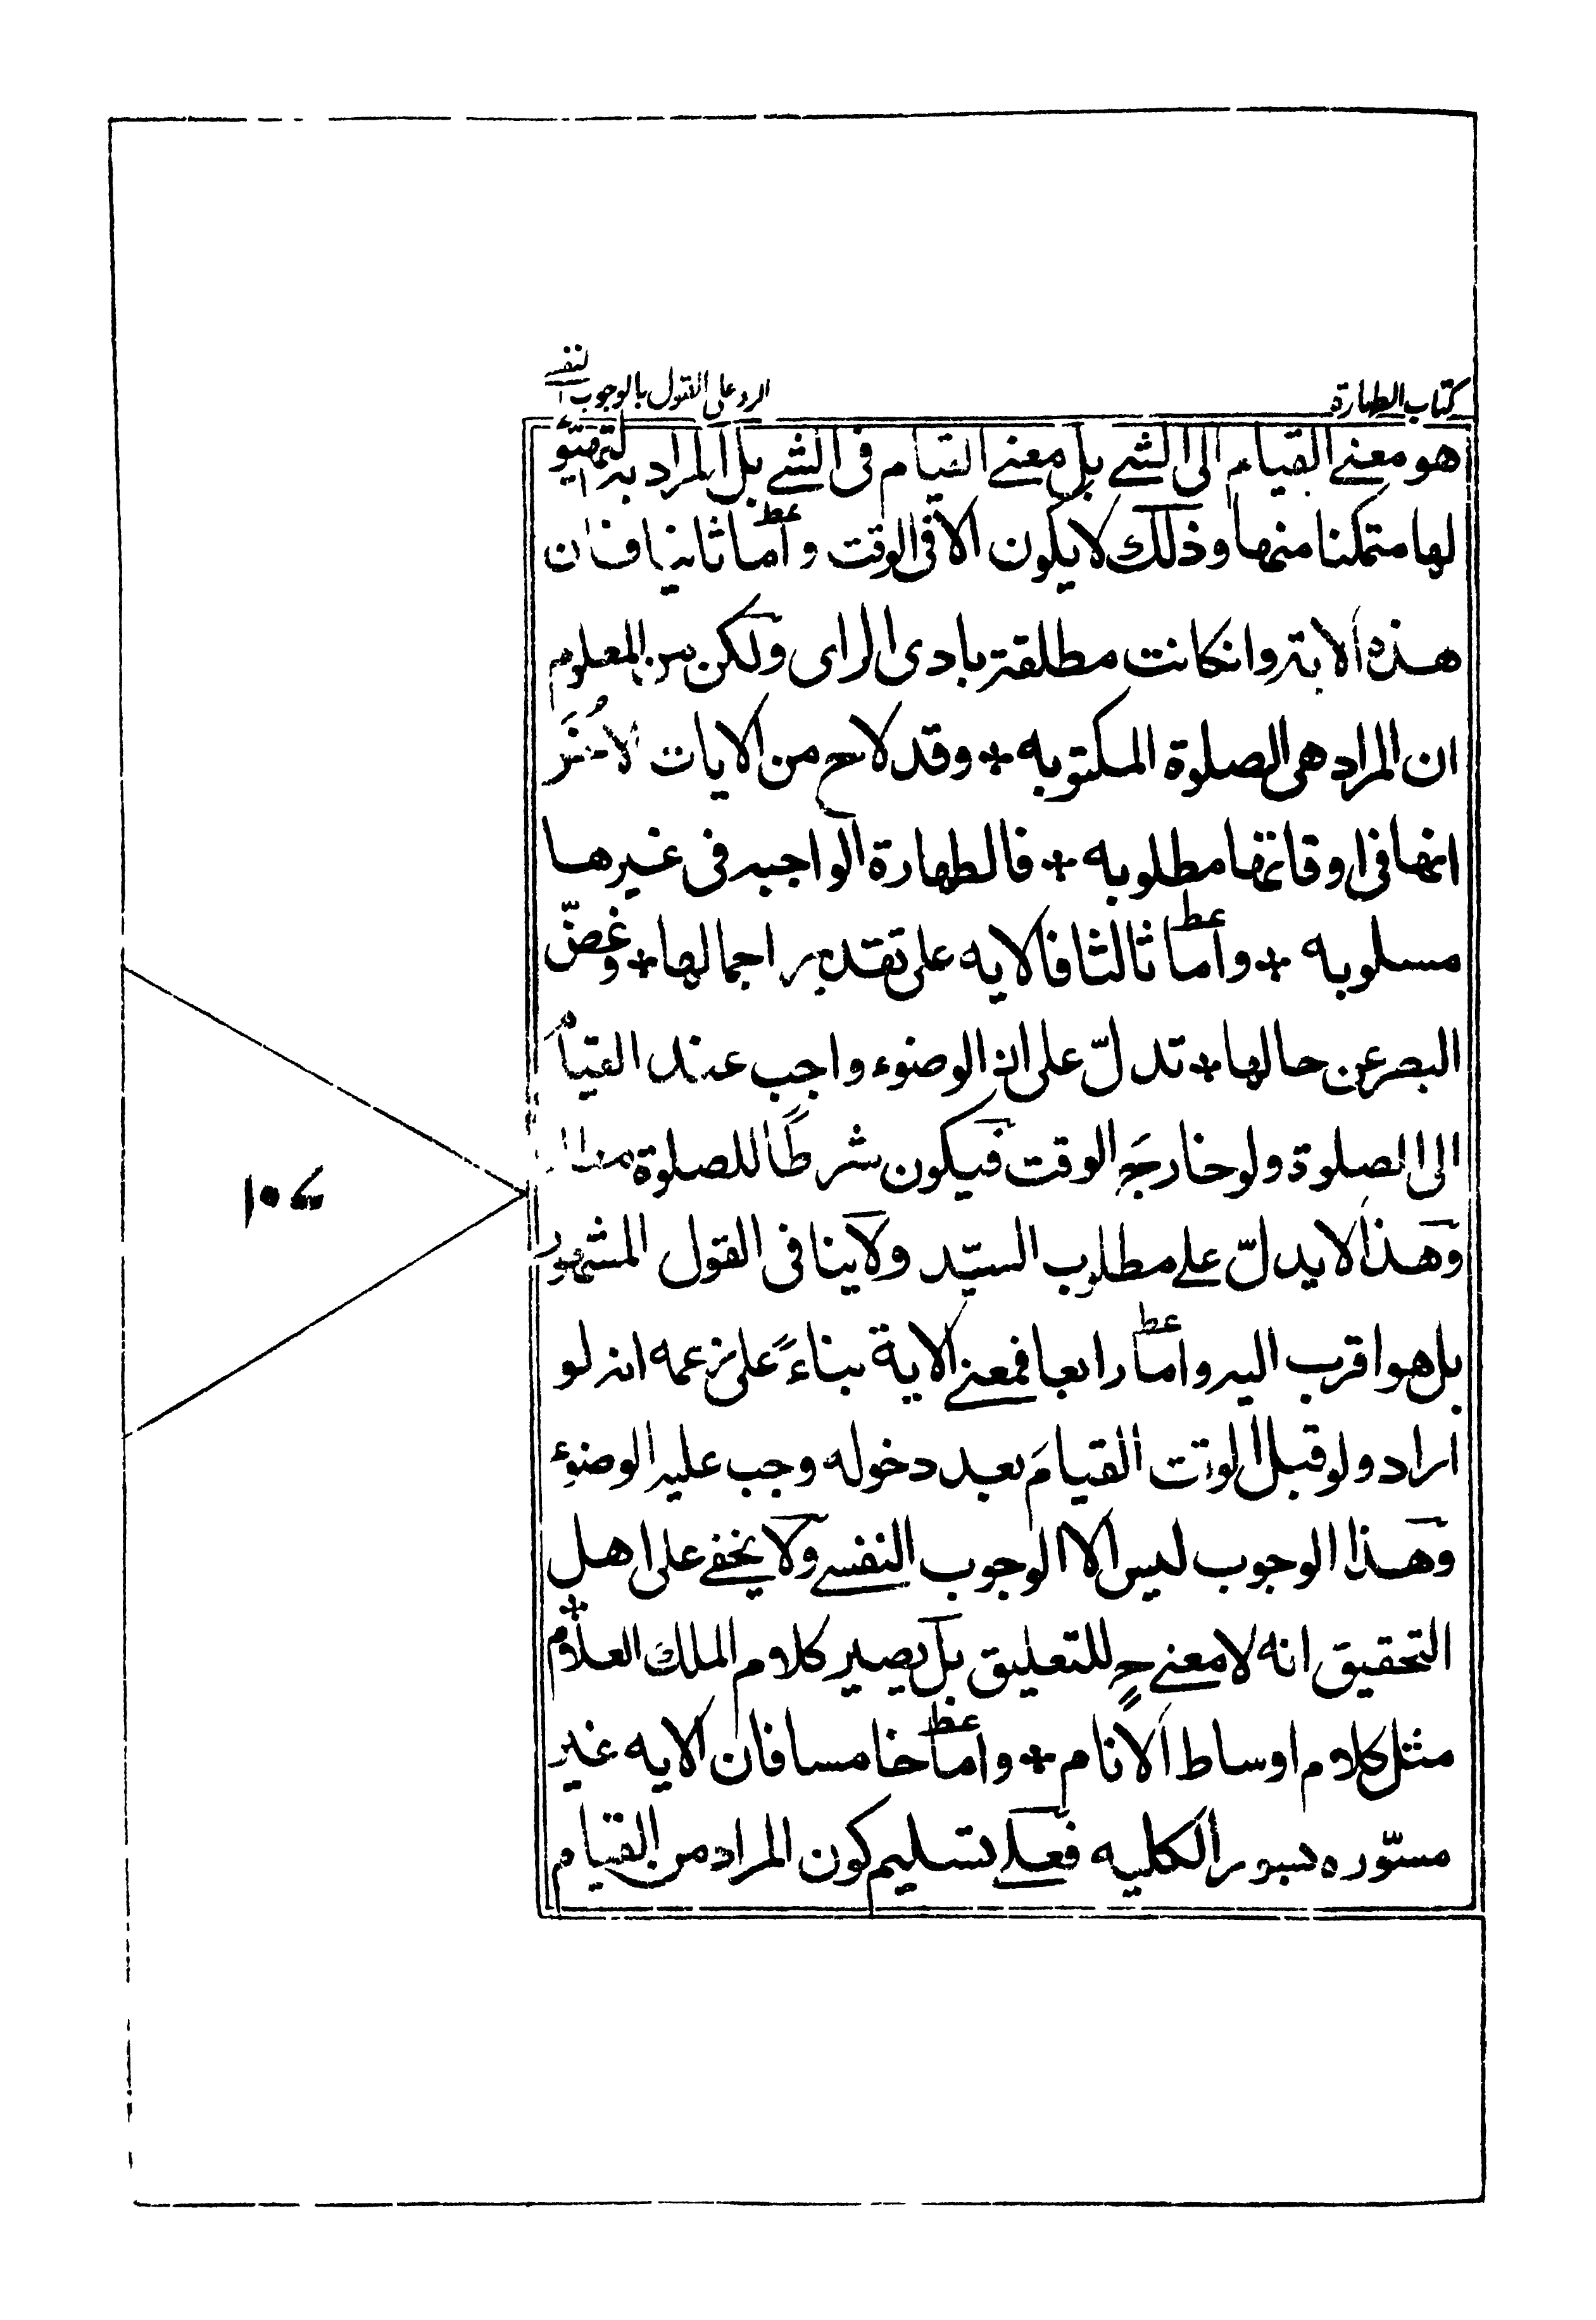 كتاب الطهارة
الرد على القول بالوجوب النفسي
هو معنى القيام الى الشي بل معنى القيام فى الشي بل المراد به التهيؤ
لها متمكنا منها وذلك لا يكون الا فى الوقت واما ثانيا فان
هذه الاية وانكانت مطلقة بادى الراى ولكن من المعلوم
ان المراد هى الصلوة المكتوبه * وقد لاح من الايات الاخر
انها فى اوقاتها مطلوبه * فالطهارة الواجبه فى غيرها
مسلوبه * واما ثالثا فالايه على تقدير اجمالها * وغض
البصر عن حالها * تدلّ على ان الوضوء واجب عند القيام
الى الصلوة ولو خارج الوقت فيكون شرطًا للصلوة
وهذا لا يدلّ على مطلوب السيّد ولا ينافى القول المشهور
بل هو اقرب اليه واما رابعا فمعنى الاية بناءً على زعمه انه لو
اراد ولو قبل الوقت القيام بعد دخوله وجب عليه الوضوء
وهذا الوجوب ليس الا الوجوب النفسي ولا يخفى على اهل
التحقيق انه لا معنى ح للتعليق بل يصير كلام الملك العلام *
مثل كلام اوساط الانام * واما خامسا فان الايه غير
مسوّره بسور الكليه فعلى تسليم كون المراد من القيام